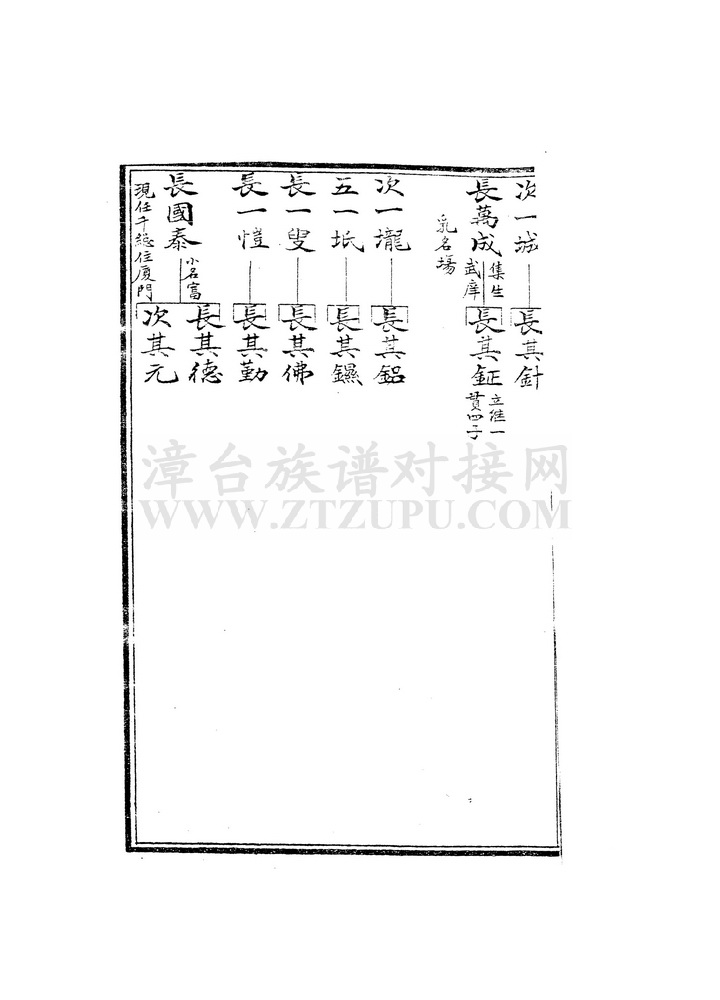 次一城
長其針
長萬成
集生
武庠
乳名場
長其鉦
立繼一
貫四子
次一壠
長其鋁
五一坻
長其鑼
長一叟
長其佛
長一愷
長其勤
長國泰
小名富
現任千總住厦門
長其德
次其元
漳台族谱对接网
WWW.ZTZUPU.COM